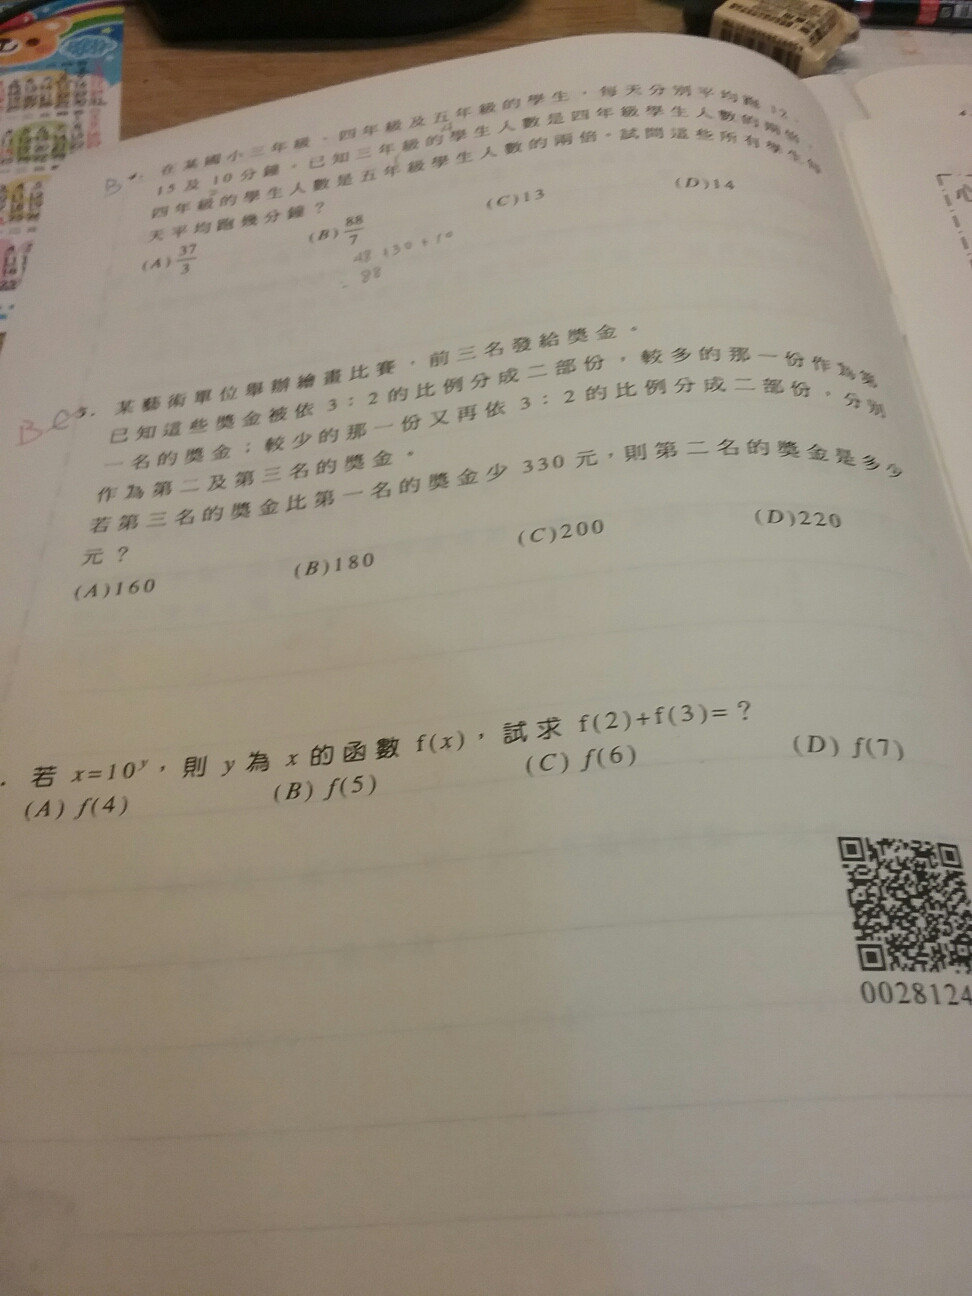 B 4. 在某國小三年級、四年級及五年級的學生，每天分別平均跑 12、
15 及 10 分鐘。已知三年級的學生人數是四年級學生人數的兩倍，
四年級的學生人數是五年級學生人數的兩倍。試問這些所有學生每
天平均跑幾分鐘？
(A) 37/3 (B) 88/7 (C)13 (D)14
48 +30 +10
= 88
B C 5. 某藝術單位舉辦繪畫比賽，前三名發給獎金。
已知這些獎金被依 3：2 的比例分成二部份，較多的那一份作為第
一名的獎金；較少的那一份又再依 3：2 的比例分成二部份，分別
作為第二及第三名的獎金。
若第三名的獎金比第一名的獎金少 330 元，則第二名的獎金是多少
元？
(A)160 (B)180 (C)200 (D)220
. 若 x=10^y，則 y 為 x 的函數 f(x)，試求 f(2)+f(3)=？
(A) f(4) (B) f(5) (C) f(6) (D) f(7)
0028124